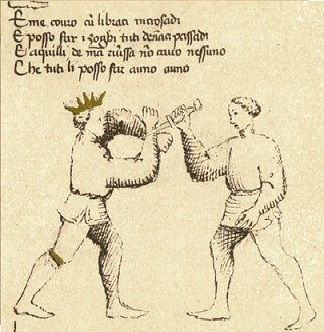 E me couro cū libraci incrosadi
E posso far i zoghi tuti denāci passadi
E aquilli de mā riūssa nō auio nessuno
Che tuti li posso far auno auno